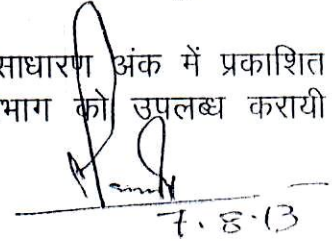 साधारण अंक में प्रकाशित
भाग को उपलब्ध करायी
7.8.13